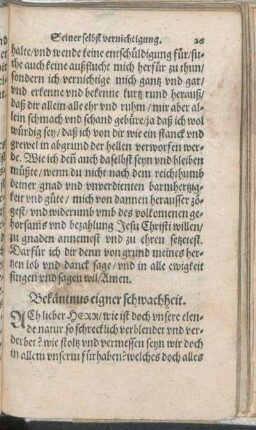 Seiner selbst vernichtigung. 26
halte/vnd wende keine entschüldigung für/su-
che auch keine außflucht mich herfür zu thun/
sondern ich vernichtige mich gantz vnd gar/
vnd erkenne vnd bekenne kurtz rund herauß/
daß dir allein alle ehr vnd ruhm/mir aber al-
lein schmach vnd schand gebüre/ja daß ich wol
würdig sey/daß ich von dir wie ein stanck vnd
grewel in abgrund der hellen verworfen wer-
de. Wie ich deñ auch daselbst seyn vnd bleiben
müßte/wenn du nicht nach dem reichthumb
deiner gnad vnd vnverdienten barmhertzig-
keit vnd güte/mich von dannen herausser zö-
gest/vnd widerumb vmb des volkomenen ge-
horsams vnd bezahlung Jesu Christi willen/
zu gnaden annemest vnd zu ehren setzetest.
Darfür ich dir denn von grund meines her-
tzen lob vnd danck sage/vnd in alle ewigkeit
singen vnd sagen wil/Amen.
Bekäntnus eigner schwachheit.
ACh lieber HERR/wie ist doch vnsere elen-
de natur so schrecklich verblendet vnd ver-
derbet? wie stoltz vnd vermessen seyn wir doch
in allem vnserm fürhaben? welches doch alles